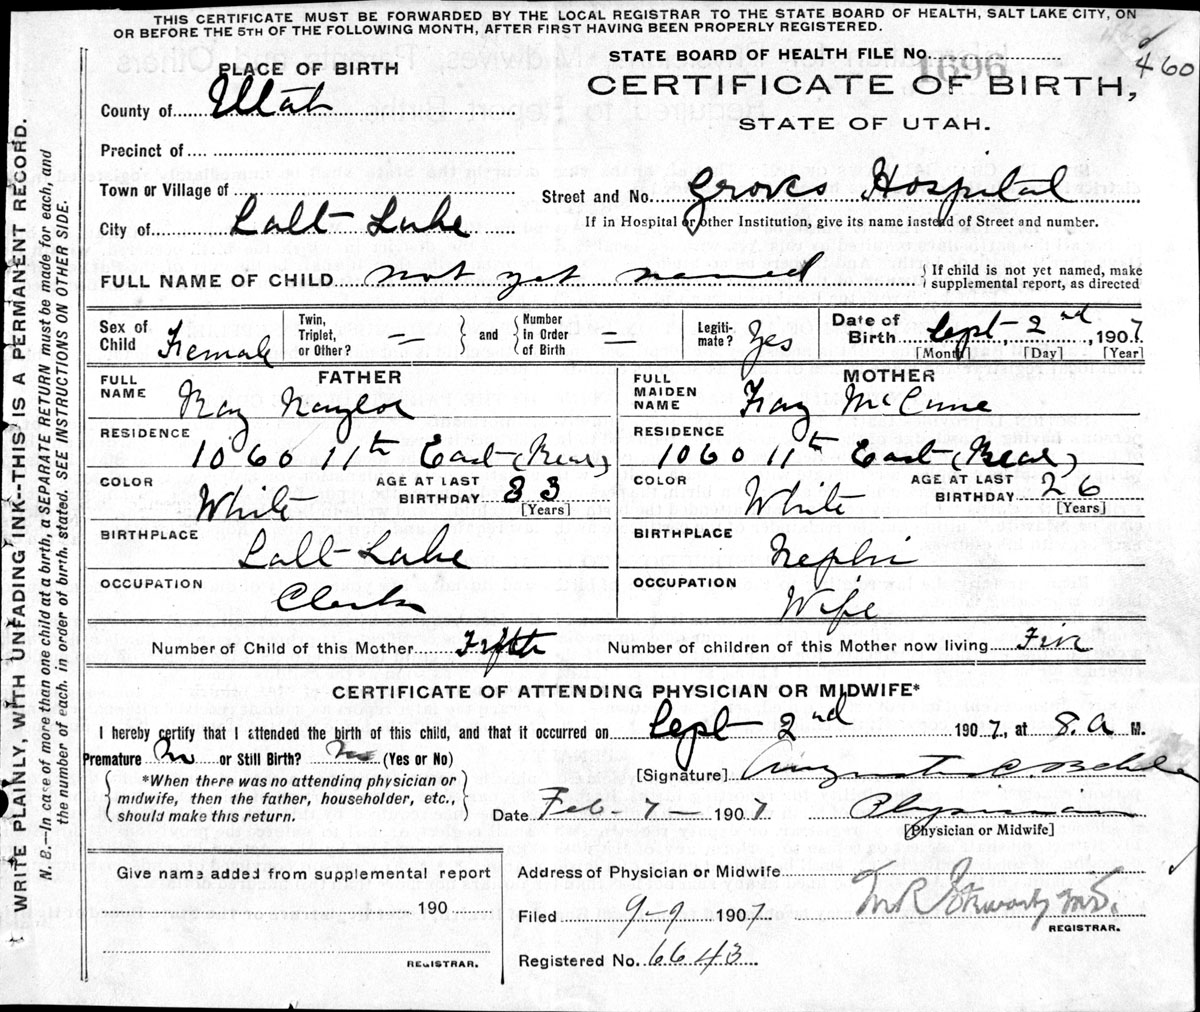 THIS CERTIFICATE MUST BE FORWARDED BY THE LOCAL REGISTRAR TO THE STATE BOARD OF HEALTH, SALT LAKE CITY, ON
OR BEFORE THE 5TH OF THE FOLLOWING MONTH, AFTER FIRST HAVING BEEN PROPERLY REGISTERED.
460
STATE BOARD OF HEALTH FILE No. 1696
PLACE OF BIRTH
CERTIFICATE OF BIRTH,
STATE OF UTAH.
County of Utah
Precinct of
Town or Village of
Street and No. Groves Hospital
City of Salt Lake
If in Hospital or other Institution, give its name instead of Street and number.
FULL NAME OF CHILD not yet named { If child is not yet named, make
supplemental report, as directed
Sex of Child Female
Twin, Triplet, or Other? = } and { Number in Order of Birth =
Legiti-mate? Yes
Date of Birth Sept. 2nd, 1907
[Month] [Day] [Year]
FATHER
FULL NAME Ray Naylor
MOTHER
FULL MAIDEN NAME Fay McCune
RESIDENCE 1060 11th East (Rear)
RESIDENCE 1060 11th East (Rear)
COLOR White AGE AT LAST BIRTHDAY 33 [Years]
COLOR White AGE AT LAST BIRTHDAY 26 [Years]
BIRTHPLACE Salt Lake
BIRTHPLACE Nephi
OCCUPATION Clerk
OCCUPATION Wife
Number of Child of this Mother Fifth Number of children of this Mother now living Five
CERTIFICATE OF ATTENDING PHYSICIAN OR MIDWIFE*
I hereby certify that I attended the birth of this child, and that it occurred on Sept 2nd 1907, at 8.a M.
Premature No or Still Birth? No (Yes or No)
[Signature]
*When there was no attending physician or
midwife, then the father, householder, etc.,
should make this return.
Date Feb-7- 1907 Physician
[Physician or Midwife]
Give name added from supplemental report
190
REGISTRAR.
Address of Physician or Midwife
Filed 9-9 1907
REGISTRAR.
Registered No. 6643
WRITE PLAINLY, WITH UNFADING INK--THIS IS A PERMANENT RECORD.
N. B.—In case of more than one child at a birth, a SEPARATE RETURN must be made for each, and
the number of each, in order of birth, stated. SEE INSTRUCTIONS ON OTHER SIDE.